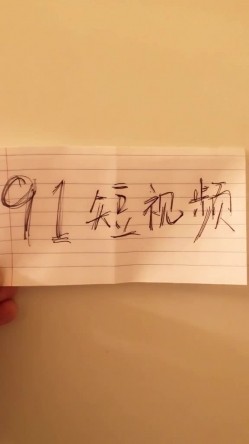 91短视频